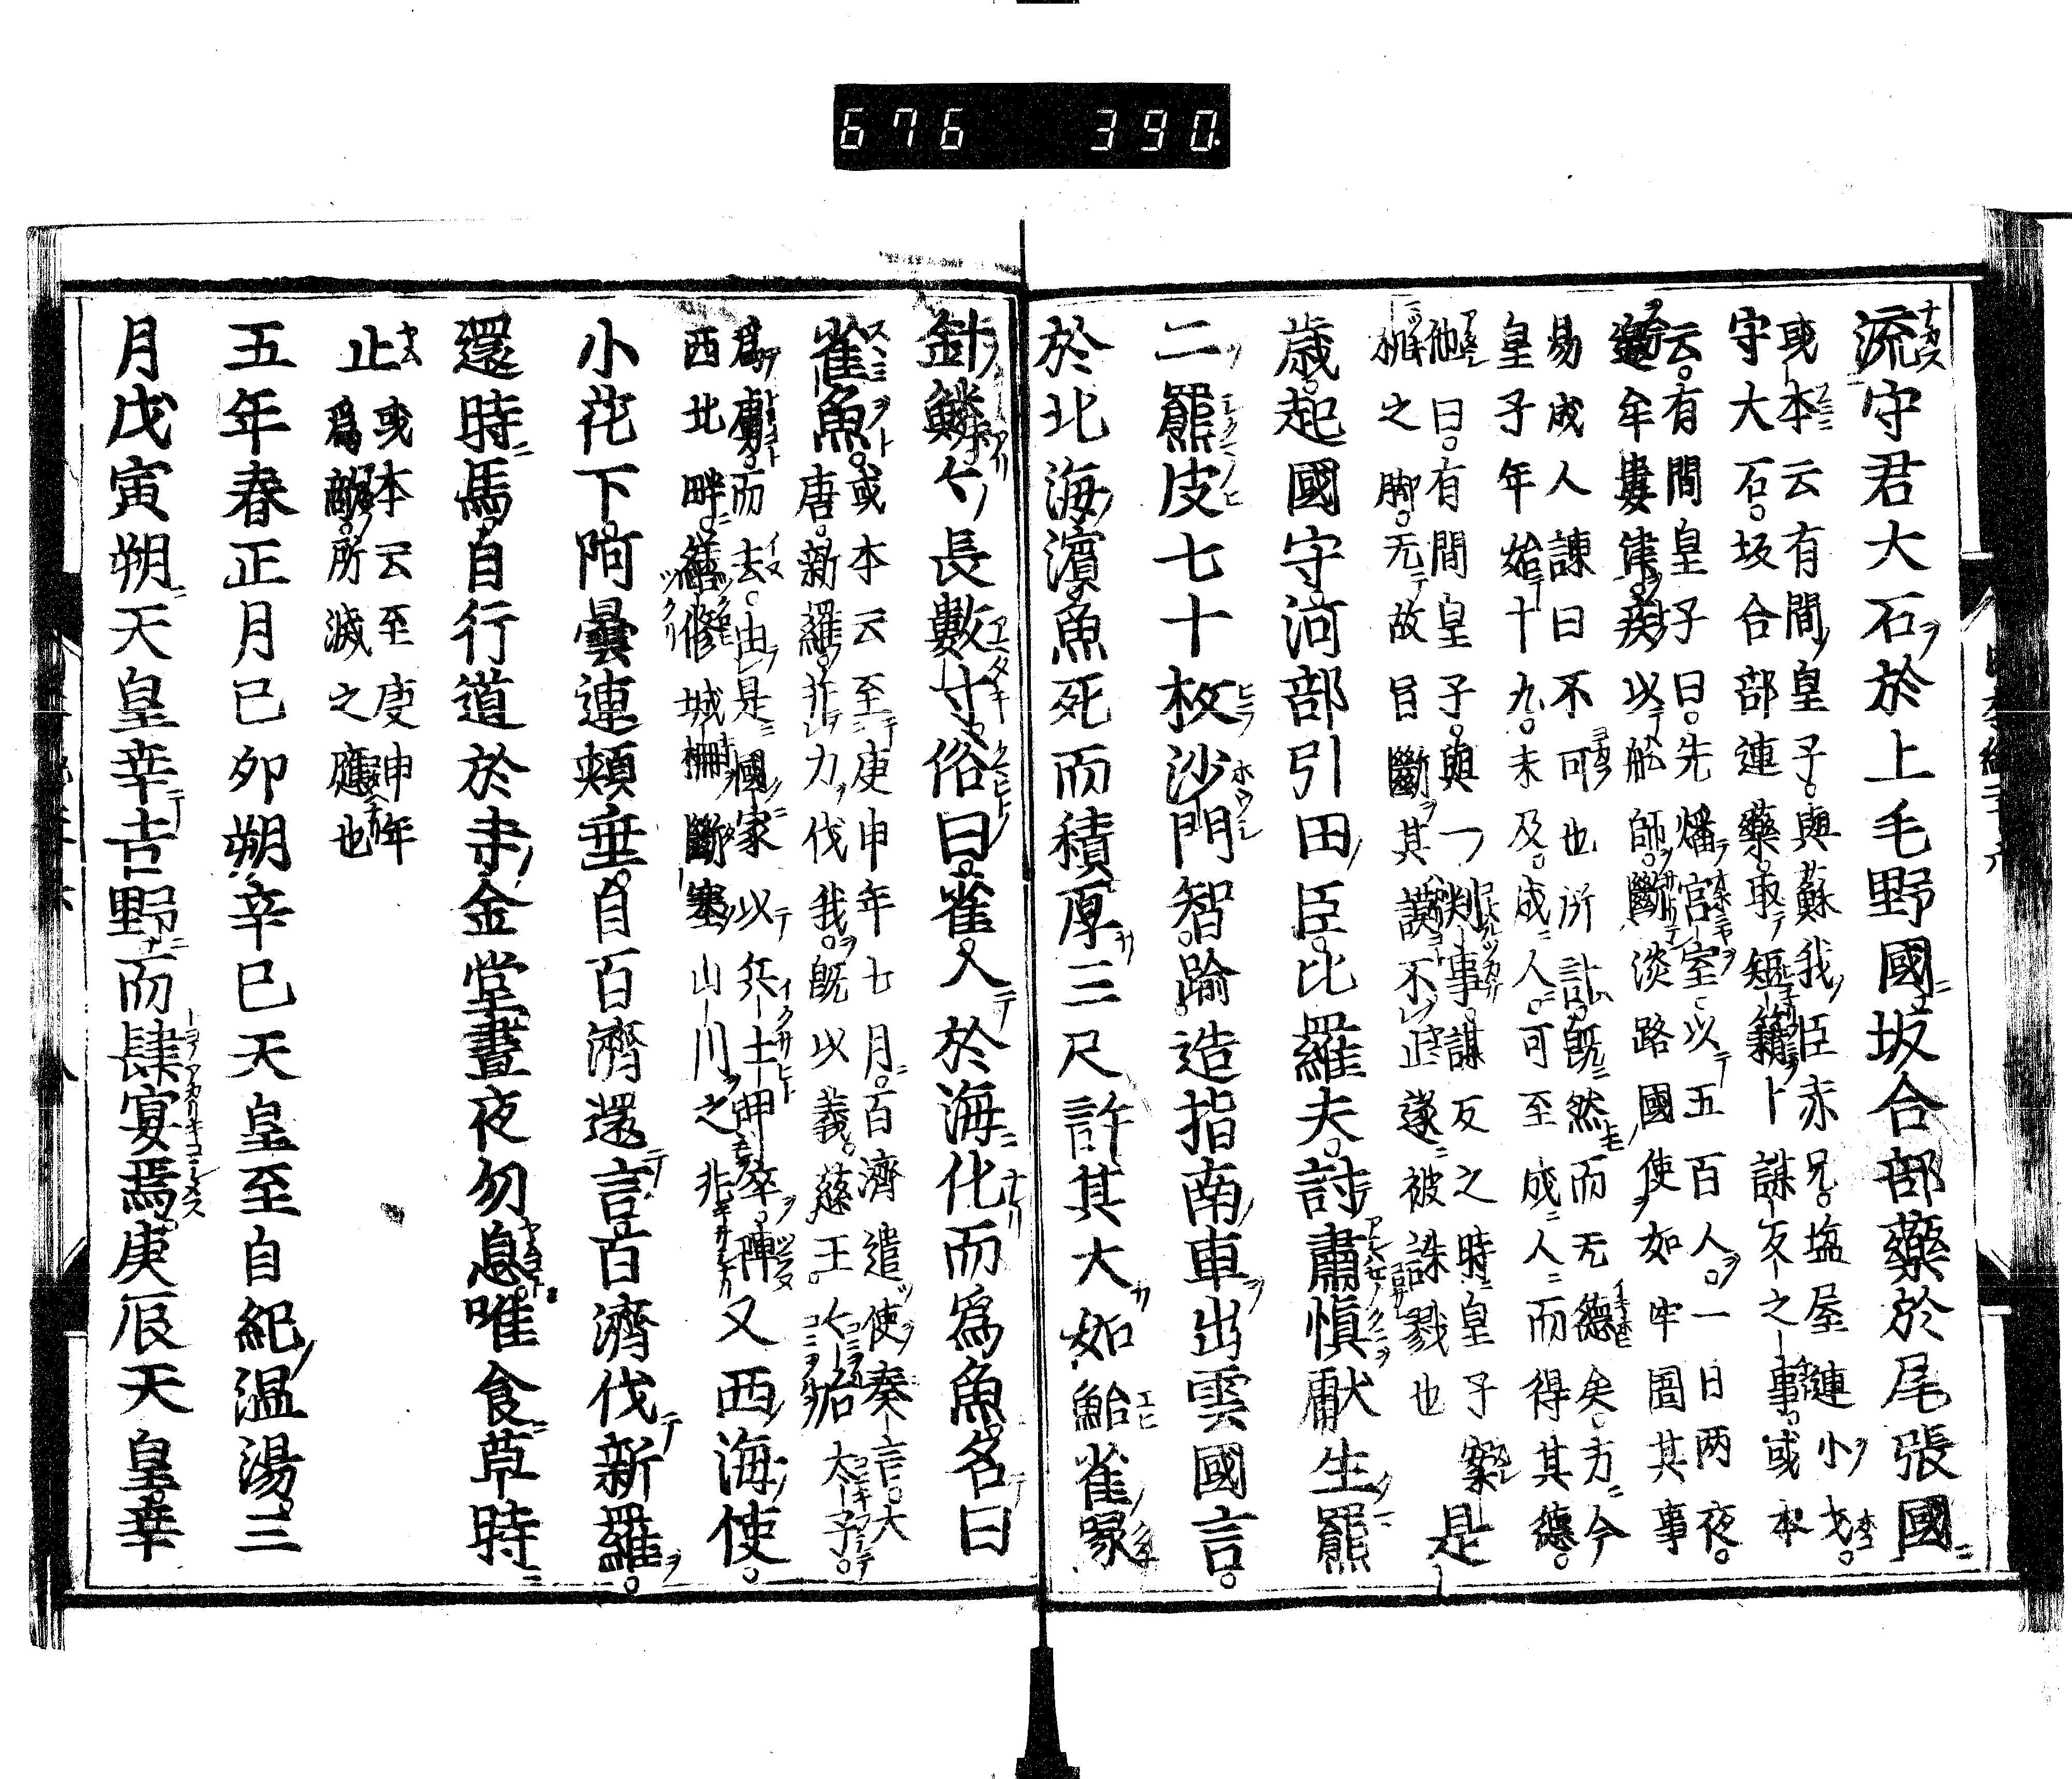 676 390.
流守君大石於上毛野國坂合部藥於尾張國
或本云有間皇子與蘇我臣赤兄塩屋連小戈
守大石坂合部連藥取短籍卜謀反之事或本
云有間皇子曰先燔宮室以五百人一日兩夜
邀牟婁津疾以舩師斷淡路國使如牢圄其事
易成人諫曰不可也所計既然而无德矣方今
皇子年始十九未及成人可至成人而得其德
他日有間皇子與一判事謀反之時皇子案
机之脚无故自斷其謨不止遂被誅戮也
是
歳起國守河部引田臣比羅夫討肅愼獻生羆
二羆皮七十枚沙門智踰造指南車出雲國言
於北海濱魚死而積厚三尺許其大如鮐雀喙
針鱗々長數寸俗曰雀入於海化而爲魚名曰
雀魚
或本云至庚申年七月百濟遣使奏言大
唐新羅并力伐我既以義慈王々后大子
爲虜而去由是國家以兵士甲卒陣
西北畔繕修城柵斷塞山川之兆
又西海使
小花下阿曇連頬垂自百濟還言百濟伐新羅
還時馬自行道於寺金堂晝夜勿息唯食草時
止
或本云至庚申年
爲敵所滅之應也
五年春正月己卯朔辛巳天皇至自紀温湯三
月戊寅朔天皇幸吉野而肆宴焉庚辰天皇幸